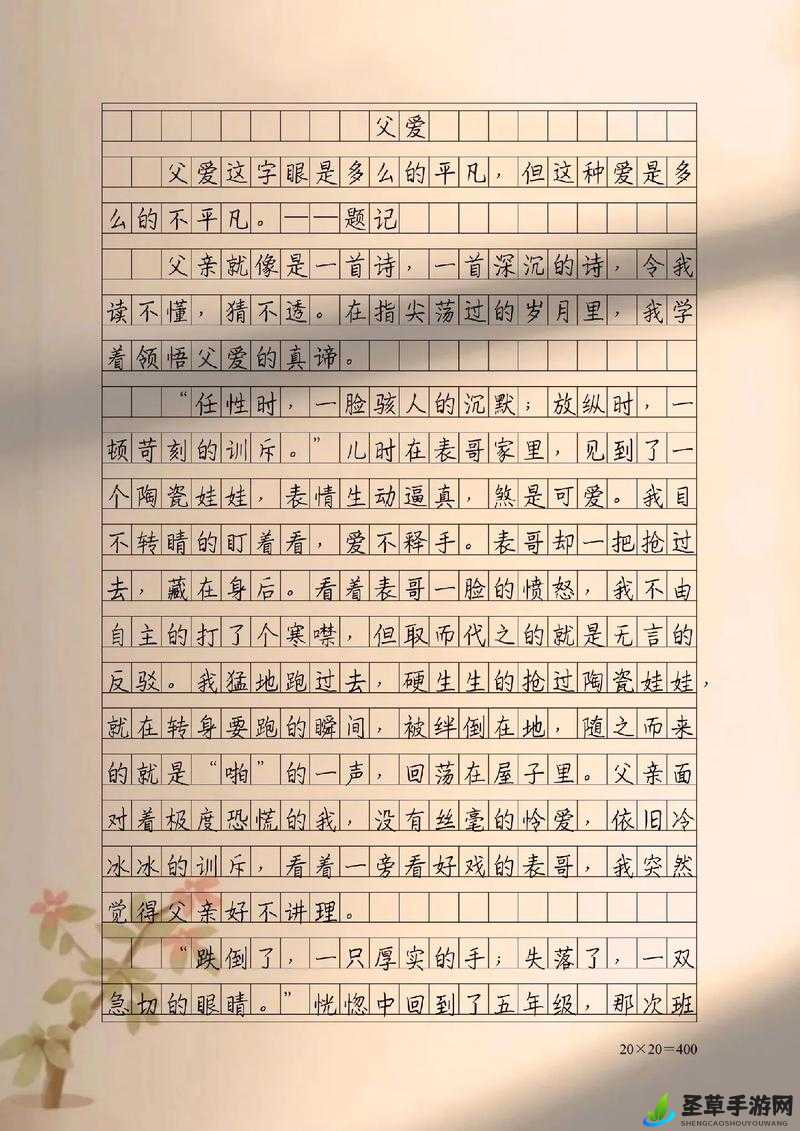 父爱
父爱这字眼是多么的平凡，但这种爱是多
么的不平凡。——题记
父亲就像是一首诗，一首深沉的诗，令我
读不懂，猜不透。在指尖荡过的岁月里，我学
着领悟父爱的真谛。
“任性时，一脸骇人的沉默；放纵时，一
顿苛刻的训斥。”儿时在表哥家里，见到了一
个陶瓷娃娃，表情生动逼真，煞是可爱。我目
不转睛的盯着看，爱不释手。表哥却一把抢过
去，藏在身后。看着表哥一脸的愤怒，我不由
自主的打了个寒噤，但取而代之的就是无言的
反驳。我猛地跑过去，硬生生的抢过陶瓷娃娃，
就在转身要跑的瞬间，被绊倒在地，随之而来
的就是“啪”的一声，回荡在屋子里。父亲面
对着极度恐慌的我，没有丝毫的怜爱，依旧冷
冰冰的训斥，看着一旁看好戏的表哥，我突然
觉得父亲好不讲理。
“跌倒了，一只厚实的手；失落了，一双
急切的眼睛。”恍惚中回到了五年级，那次班
20×20=400
圣草手游网
SHENGCAOSHOUYOUWANG